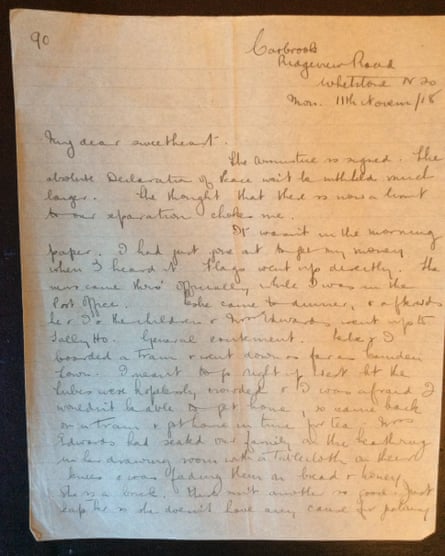 90
Carbrook
Ridgeview Road
Whetstone N 20
Mon. 11th Novem/18
My dear sweetheart.
The armistice is signed. The
absolute Declaration of Peace won't be withheld much
longer. The thought that there is now a limit
to our separation chokes me.
It wasn't in the morning
paper. I had just gone out to get my money
when I heard it. Flags went up directly. The
news came thro' officially while I was in the
Post Office. came to dinner, & afterwards
he & I & the children & Mrs Edwards went up to
Tally Ho. General excitement. & I
boarded a tram & went down as far as Camden
Town. I meant to go right up West but the
tubes were hopelessly crowded & I was afraid I
wouldn't be able to get home, so came back
on a tram & got home in time for tea. Mrs
Edwards had seated our family on the hearthrug
in her drawing room with a tablecloth on their
knees & was feeding them on bread & honey.
She is a brick. There isn't another so good. Just
she doesn't have any cause for